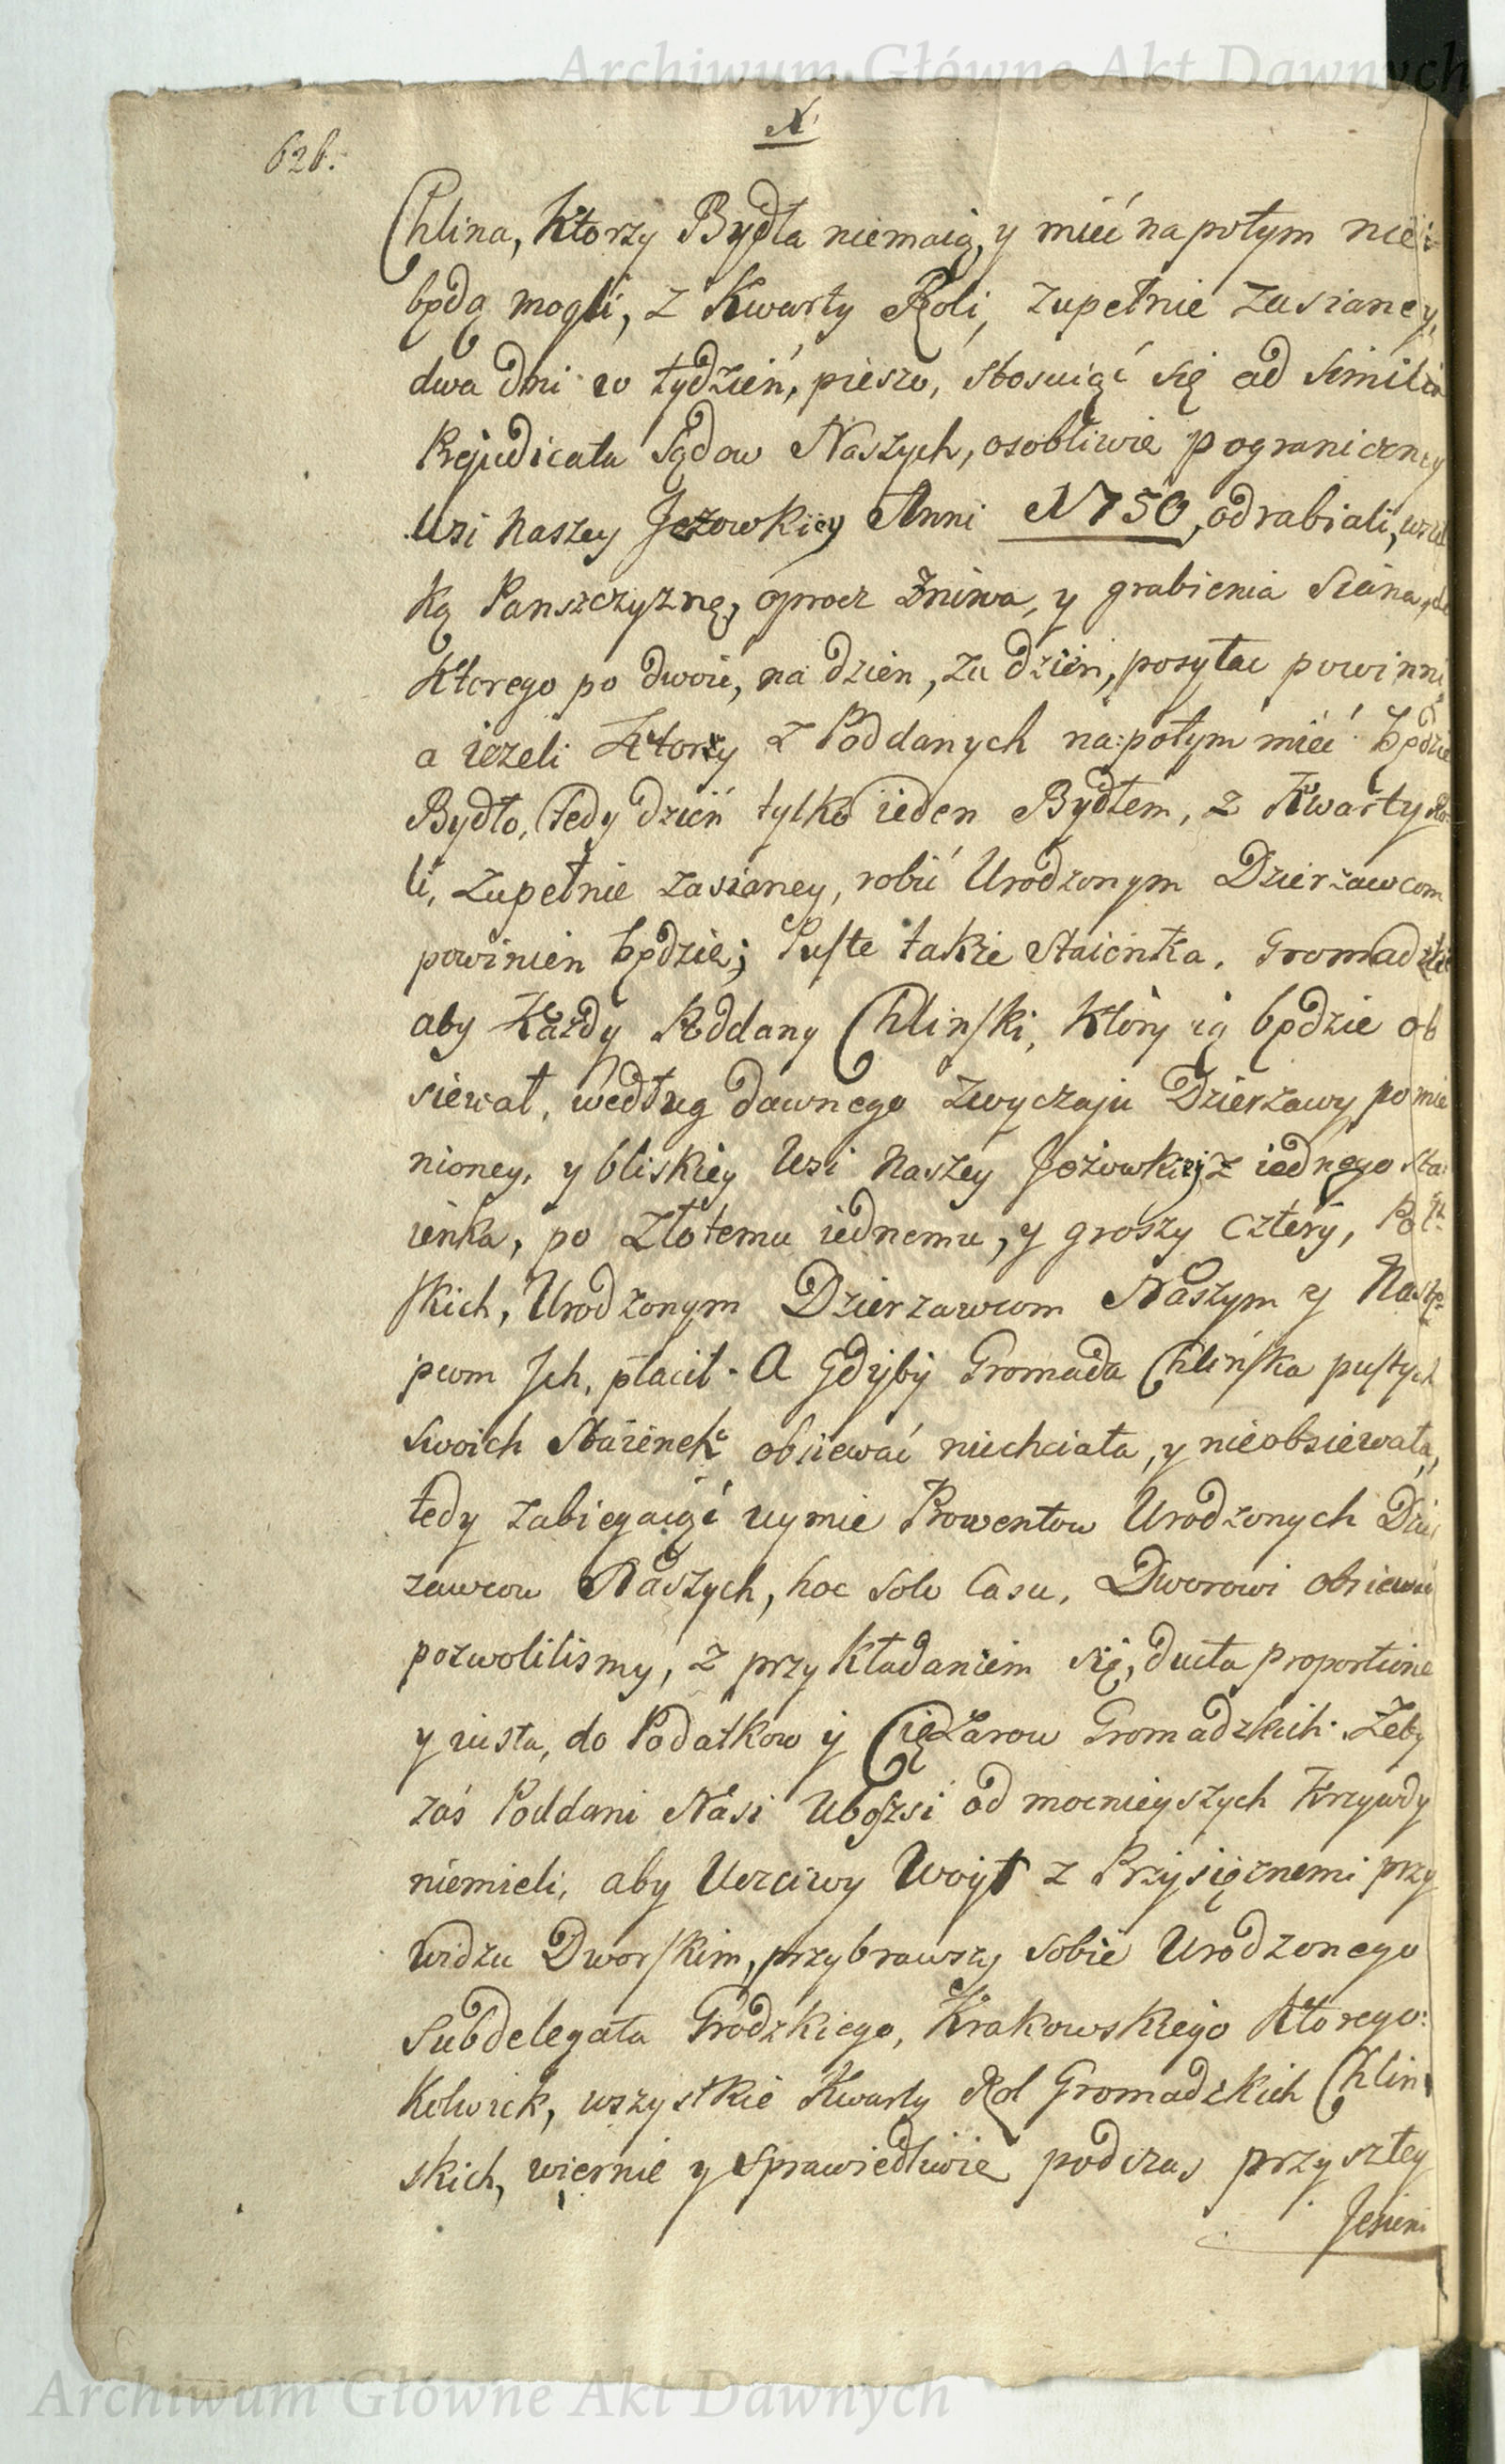 Archiwum Główne Akt Dawnych
N
626.
Chlina, Ktorzy Bydła niemaią, y mieć napotym nie
będą mogli, z Kwarty Roli, zupełnie zasianey,
dwa dni w tydzień, pieszo, stosuiąć się ad similia
Prejudicata Sądow Naszych, osobliwie pograniczney
Wsi Naszey Jeżowkiey Anni 1750, odrabiali, wszel
ką Panszczyznę, oprocz Zniwa, y grabienia Siana, do
Ktorego po dwoie, na dzien, za dzień, posyłac powinni,
a ieżeli Ktorzy z Poddanych na potym mieć będzie
Bydło, tedy dzień tylko ieden Bydłem, z Kwarty Ro
li, zupełnie zasianey, robić Urodzonym Dzierzawcom
powinien będzie; Puste także Staienka, Gromadzkie
aby Każdy Poddany Chlinski, Który ią będzie ob
siewał, według dawnego zwyczaju Dzierzawy pomie
nioney, y bliskiey Wsi Naszey Jeżowkiey z iednego sta
ienka, po Złotemu iednemu, y groszy cztery, Pol
skich, Urodzonym Dzierzawcom Naszym y Nastę
pcom Jch, płacił. A Gdyby Gromada Chlińska pustych
swoich Staienek obsiewać niechciała, y nieobsiewała,
tedy zabiegaiąć uymie Prowentow Urodzonych Dzier
zawcow Naszych, hoc solo Casu, Dworowi obsiewać
pozwolilismy, z przykładaniem się, ducta proportione
y iusta, do Podatkow y Ciężarow Gromadzkich. Zeby
zaś Poddani Nasi Ubożsi od mocnieyszych Krzywdy
niemieli, aby Uczciwy Woyt z Przysięznemi przy
Widzu Dworskim, przybrawszy sobie Urodzonego
Subdelegata Grodzkiego, Krakowskiego Ktorego:
Kolwiek, wszystkie Kwarty Rol Gromadzkich Chlin
skich, wiernie y sprawiedliwie podczas przyszłey
Jesieni
Archiwum Główne Akt Dawnych